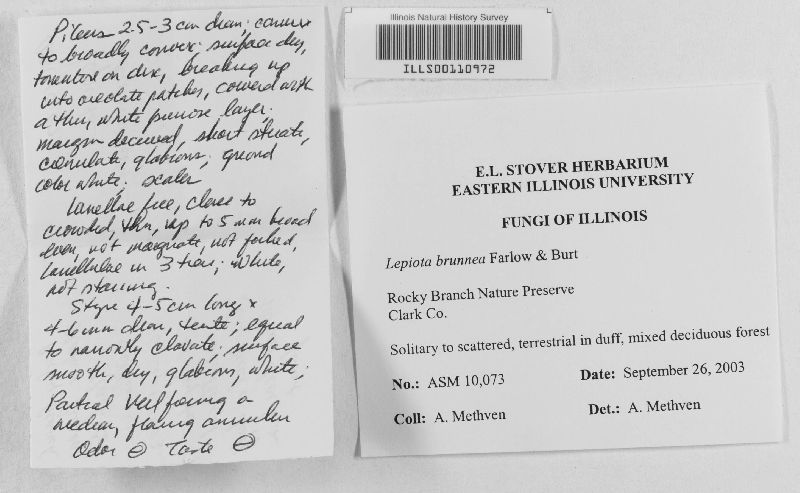 Pileus 2.5-3 cm diam; convex
to broadly convex; surface dry,
tomentose on disc, breaking up
into areolate patches, covered with
a thin, white pruinose layer;
margin decurved, short striate,
glabrous; ground
color white; scales
Lamellae free, close to
crowded, thin, up to 5 mm broad
even, not marginate, not forked,
lamellulae in 3 tiers; white,
not staining.
Stipe 4-5 cm long x
4-6 mm diam, terete; equal
to narrowly clavate; surface
smooth, dry, glabrous, white;
Partial veil forming a
median, flaring annulus
Odor ⊖ Taste ⊖
Illinois Natural History Survey
ILLS00110972
E.L. STOVER HERBARIUM
EASTERN ILLINOIS UNIVERSITY
FUNGI OF ILLINOIS
Lepiota brunnea Farlow & Burt
Rocky Branch Nature Preserve
Clark Co.
Solitary to scattered, terrestrial in duff, mixed deciduous forest
No.: ASM 10,073 Date: September 26, 2003
Coll: A. Methven Det.: A. Methven